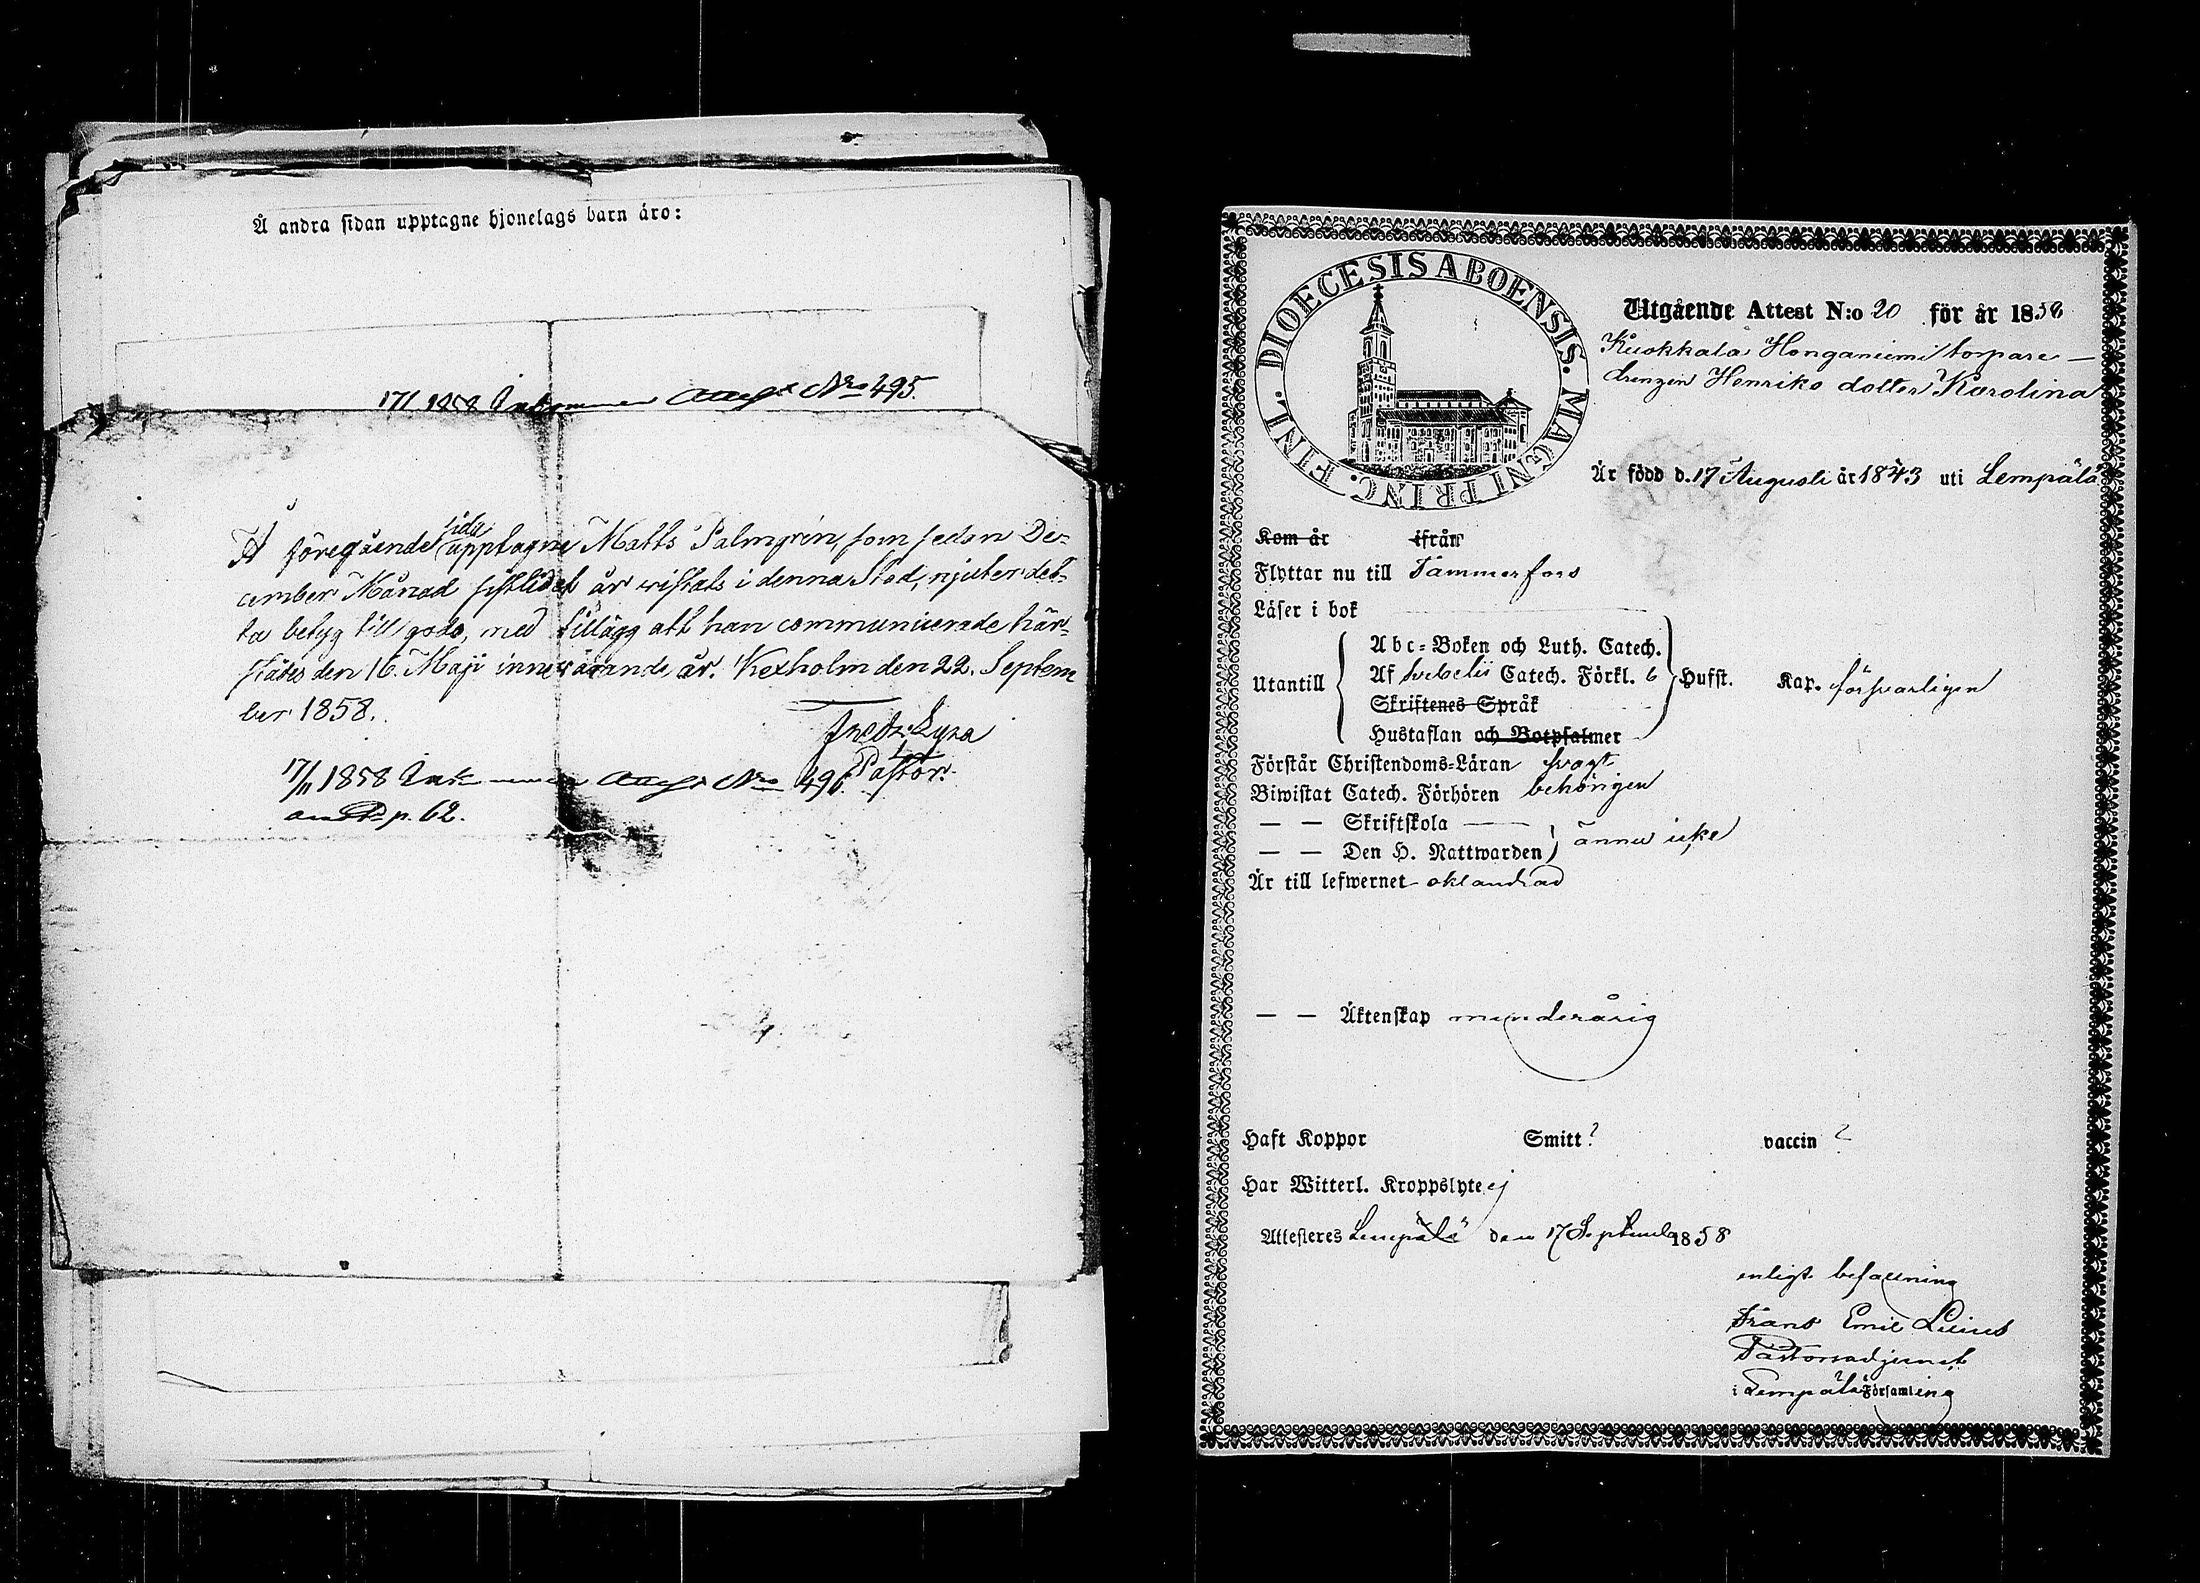 Å andra sidan upptagne hjonelags barn äro:
17/ 1858 Inkommen Attest No 495.
Å föregående sida upptagne Matts Palmgrén, som sedan De-
cember Månad sistlidet år vistats i denna Stad, njuter det-
ta betyg till godo, med tillägg att han communicerade här-
städes den 16. Maji innevarande år. Kexholm den 22. Septem
ber 1858.
Fredr.
Pastor.
17/11 1858 Ink Attest No 496.
p. 62.
DIOECESIS ABOENSIS. MAGNI PRINC. FINL.
Utgående Attest N:o 20 för år 1858
Kuokkala Honganiemi torpare –
drengen Henriks dotter Karolina
Är född d. 17 Augusti år 1843 uti Lempälä
Kom år ifrån
Flyttar nu till Tammerfors
Läser i bok
Utantill
Abc-Boken och Luth. Catech.
Af Svebelii Catech. Förkl. 6 Hufst. Kap. försvarligen
Skriftenes Språk
Hustaflan och Botpsalmer
Förstår Christendoms-Läran svagt
Biwistat Catech. Förhören behörigen
— — Skriftskola
— — Den H. Nattwarden ännu icke
Är till lefwernet oklandrad
— — Äktenskap minderårig
Haft Koppor Smitt? vaccin ?
Har Witterl. Kroppslyte ej
Attesteres Lempälä den 17 September 1858
enligt befallning
Frans Emil
Pastorsadjunct
i Lempälä Församling